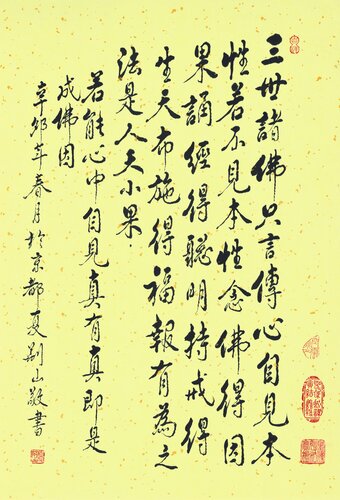 三世諸佛只言傳心自見本
性若不見本性念佛得因
果誦經得聰明持戒得
生天布施得福報有為之
法是人天小果
若能心中自見真有真即是
成佛因
辛卯年春月於京都夏荊山敬書